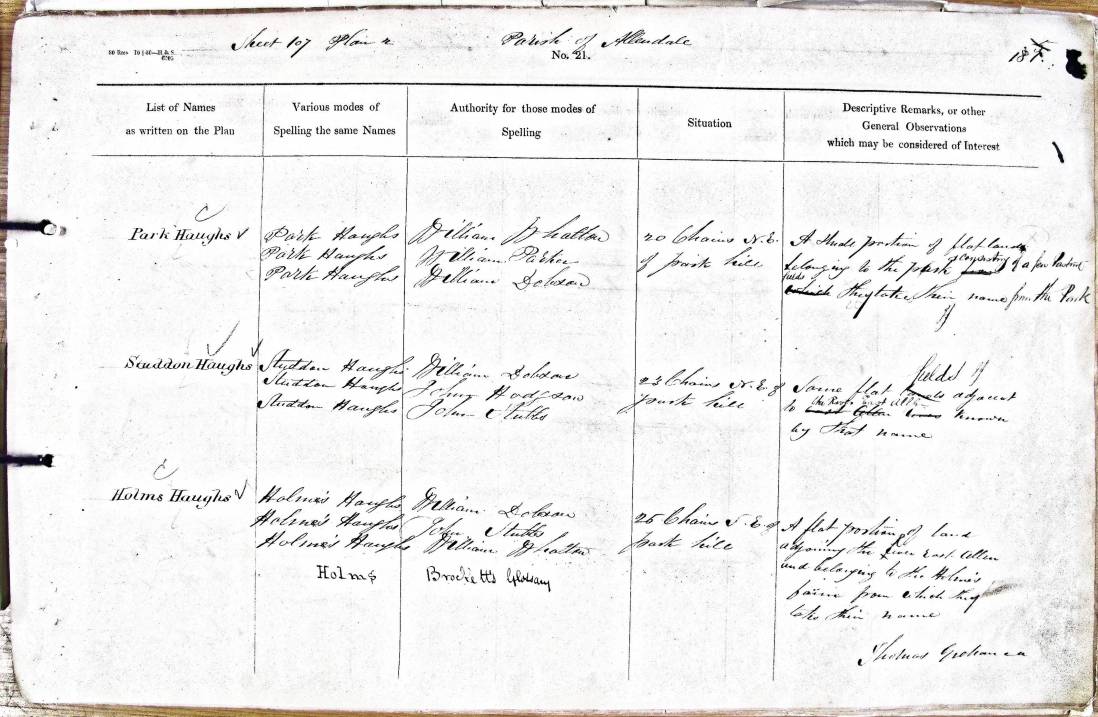 Sheet 107 Plan 2 Parish of Allendale
No. 21.
List of Names
as written on the Plan
Various modes of
Spelling the same Names
Authority for those modes of
Spelling
Situation
Descriptive Remarks, or other
General Observations
which may be considered of Interest
Park Haughs
Park Haughs
Park Haughs
Park Haughs
William Whatton
William Parker
William Dobson
20 Chains N.E.
of park hill
A portion of flat land
belonging to the park consisting of a few Pastoral
fields
which they take their name from the Park
Studdon Haughs
Studdon Haughs
Studdon Haughs
Studdon Haughs
William Dobson
John Hodgson
John Stubbs
23 Chains N.E. of
park hill
Some flat fields adjacent
to the River East Allen known
by that name
Holms Haughs
Holms's Haughs
Holms's Haughs
Holms's Haughs
Holms
William Dobson
John Stubbs
William Whatton
Brockett's Glossary
26 Chains S.E. of
park hill
A flat portion of land
adjoining the River East Allen
and belonging to the Holms's
farm from which they
take their name
Thomas